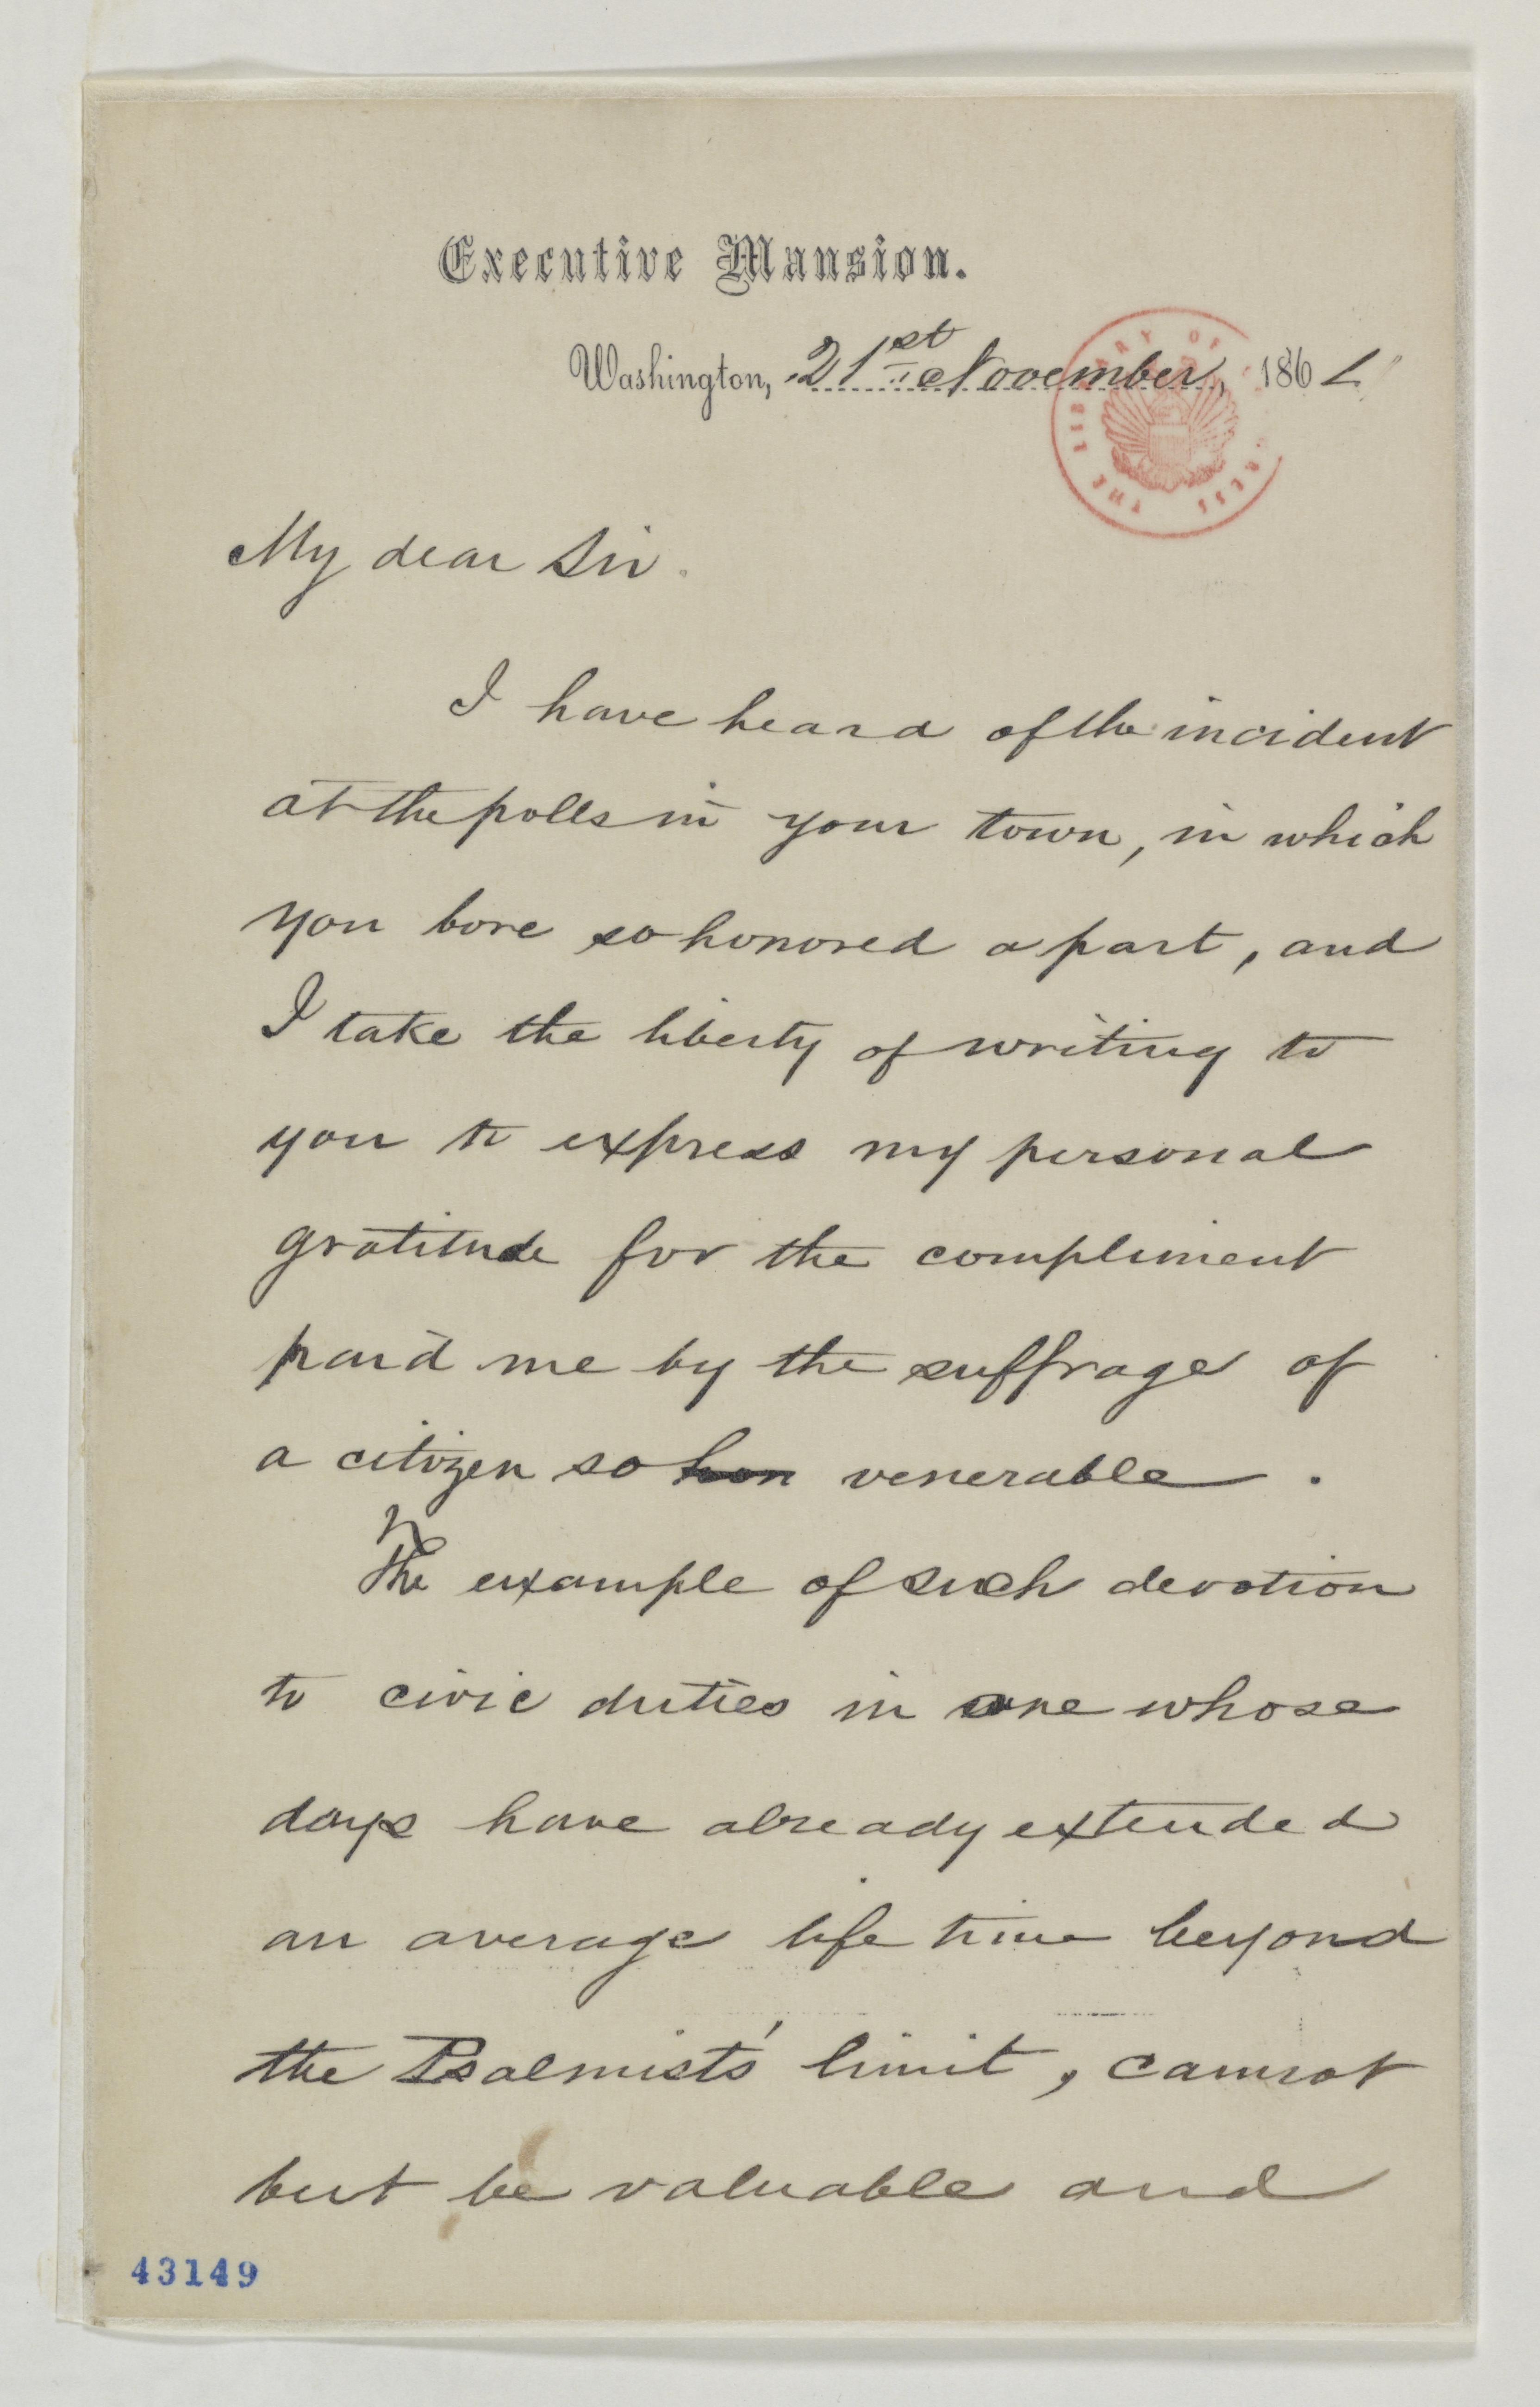 Executive Mansion.
Washington, 21st November, 186
My dear Sir.
I have heard of the incident
at the polls in your town, in which
you bore so honored a part, and
I take the liberty of writing to
you to express my personal
gratitude for the compliment
paid me by the suffrage of
a citizen so hon venerable.
The example of such devotion
to civic duties in one whose
days have already extended
an average life time beyond
the Psalmist's limit, cannot
but be valuable and
43149